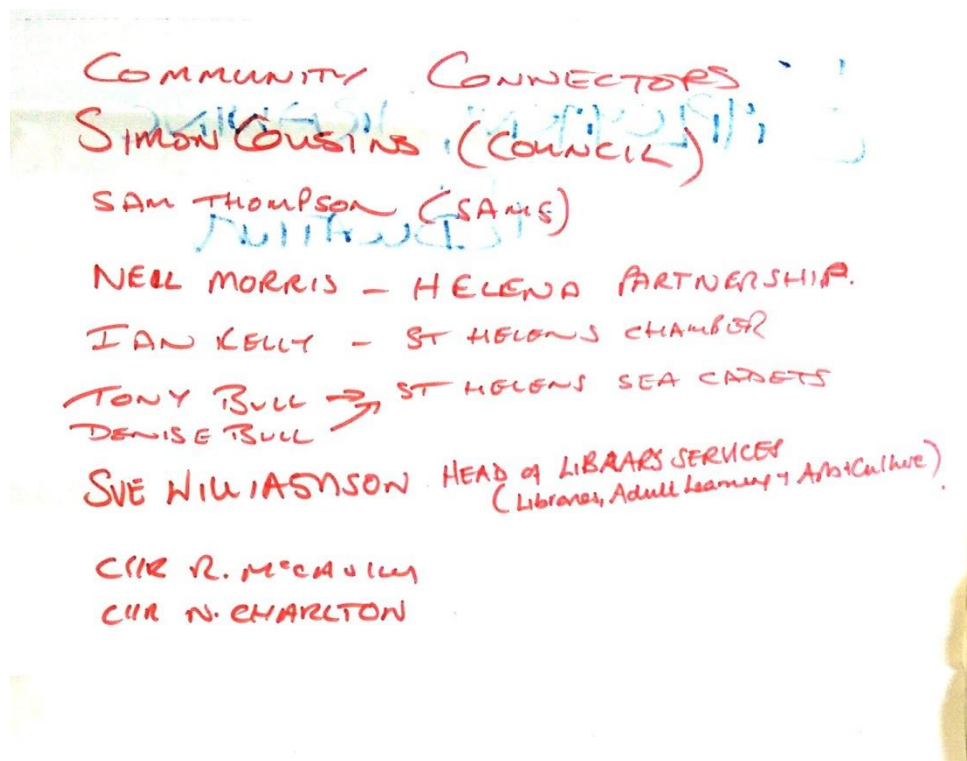 COMMUNITY CONNECTORS
SIMON COUSINS (COUNCIL)
SAM THOMPSON (SAMS)
NEIL MORRIS – HELENA PARTNERSHIP.
IAN KELLY – ST HELENS CHAMBER
TONY BULL → ST HELENS SEA CADETS
DENISE BULL ↗
SUE WILLIAMSON HEAD of LIBRARY SERVICES
(Libraries, Adult Learning + Arts + Culture).
Cllr R. McCAULEY
Cllr N. CHARLTON